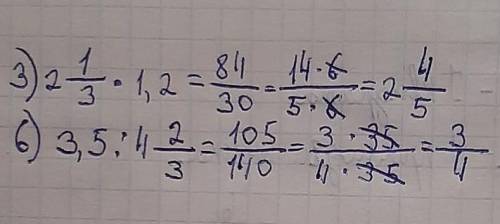 3) 2 1/3 · 1,2 = 84/30 = 14·6/5·6 = 2 4/5
6) 3,5 : 4 2/3 = 105/140 = 3·35/4·35 = 3/4